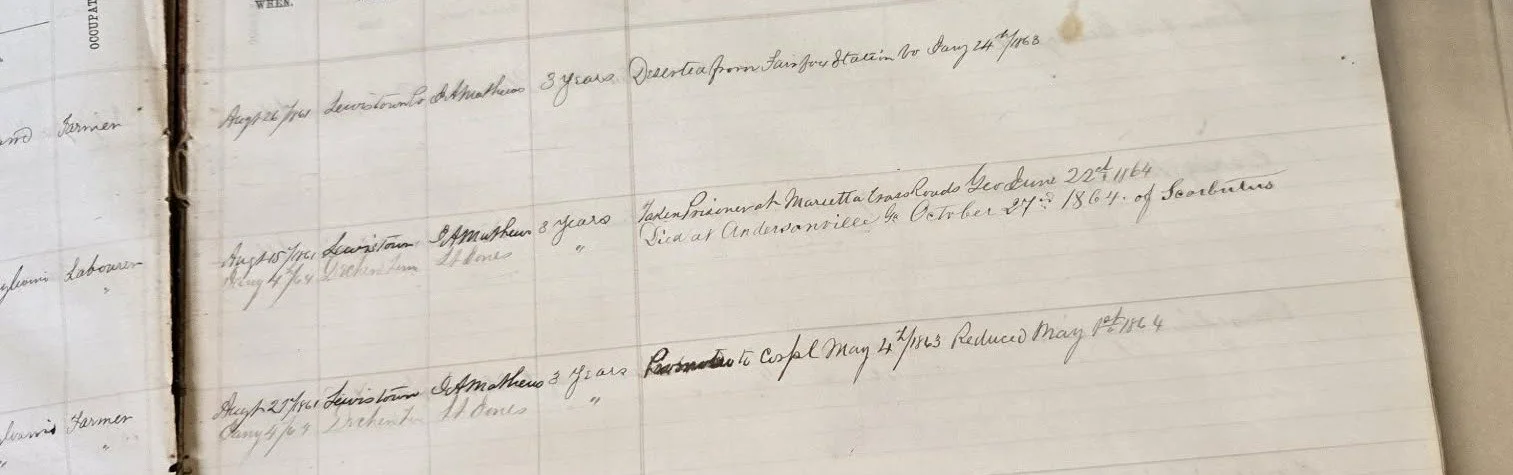 OCCUPAT
WHEN.
Farmer
Augt 26/1861 Lewistown Pa J A Mathews 3 Years Deserted from Fairfax Station Va Jany 24th/1863
Labourer
Augt 15/1861 Lewistown J A Mathews 3 Years Taken Prisoner at Marietta Cross Roads Geo June 22nd 1864
Jany 4th/64 Lt Jones " Died at Andersonville Ga October 27th 1864. of Scorbutus
"
Farmer
Augt 27/1861 Lewistown J A Mathews 3 Years Promoted to Corpl May 4th/1863 Reduced May 1st 1864
Jany 4/64 Lt Jones "
"